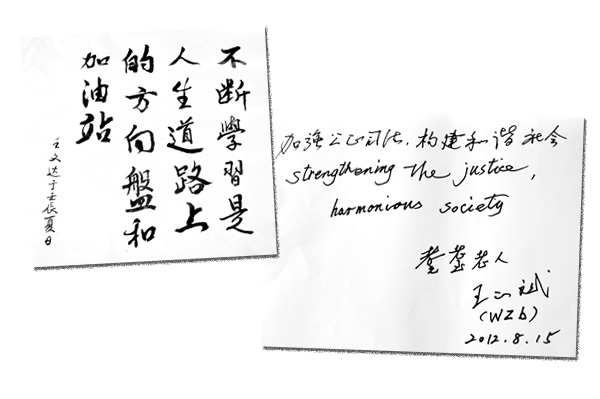 不断學習是
人生道路上
的方向盤和
加油站
王文达于壬辰夏日
加强公正司法，构建和谐社会
strengthening the justice,
harmonious society
耄耋老人
(WZb)
2012.8.15